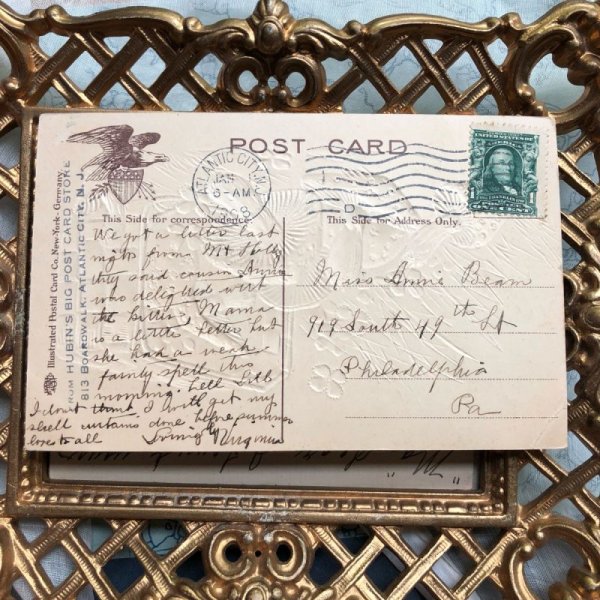 POST CARD
ATLANTIC CITY, N.J.
JAN
6-AM
8
D
1
1
This Side for correspondence.
This Side for Address Only.
Illustrated Postal Card Co. New-York.-Germany.
FROM HUBIN'S BIG POST CARD STORE
813 BOARDWALK, ATLANTIC CITY, N. J.
We got a letter last
night from Mt Holly
they said cousin Annie
was delighted with
the kitten, Mama
is a little better but
she had a weak
fainty spell this
morning. tell Lill
I don't think I will get my
shell curtains done before summer
love to all Virginia
Miss Annie Beam
919 South 49th St
Philadelphia
Pa